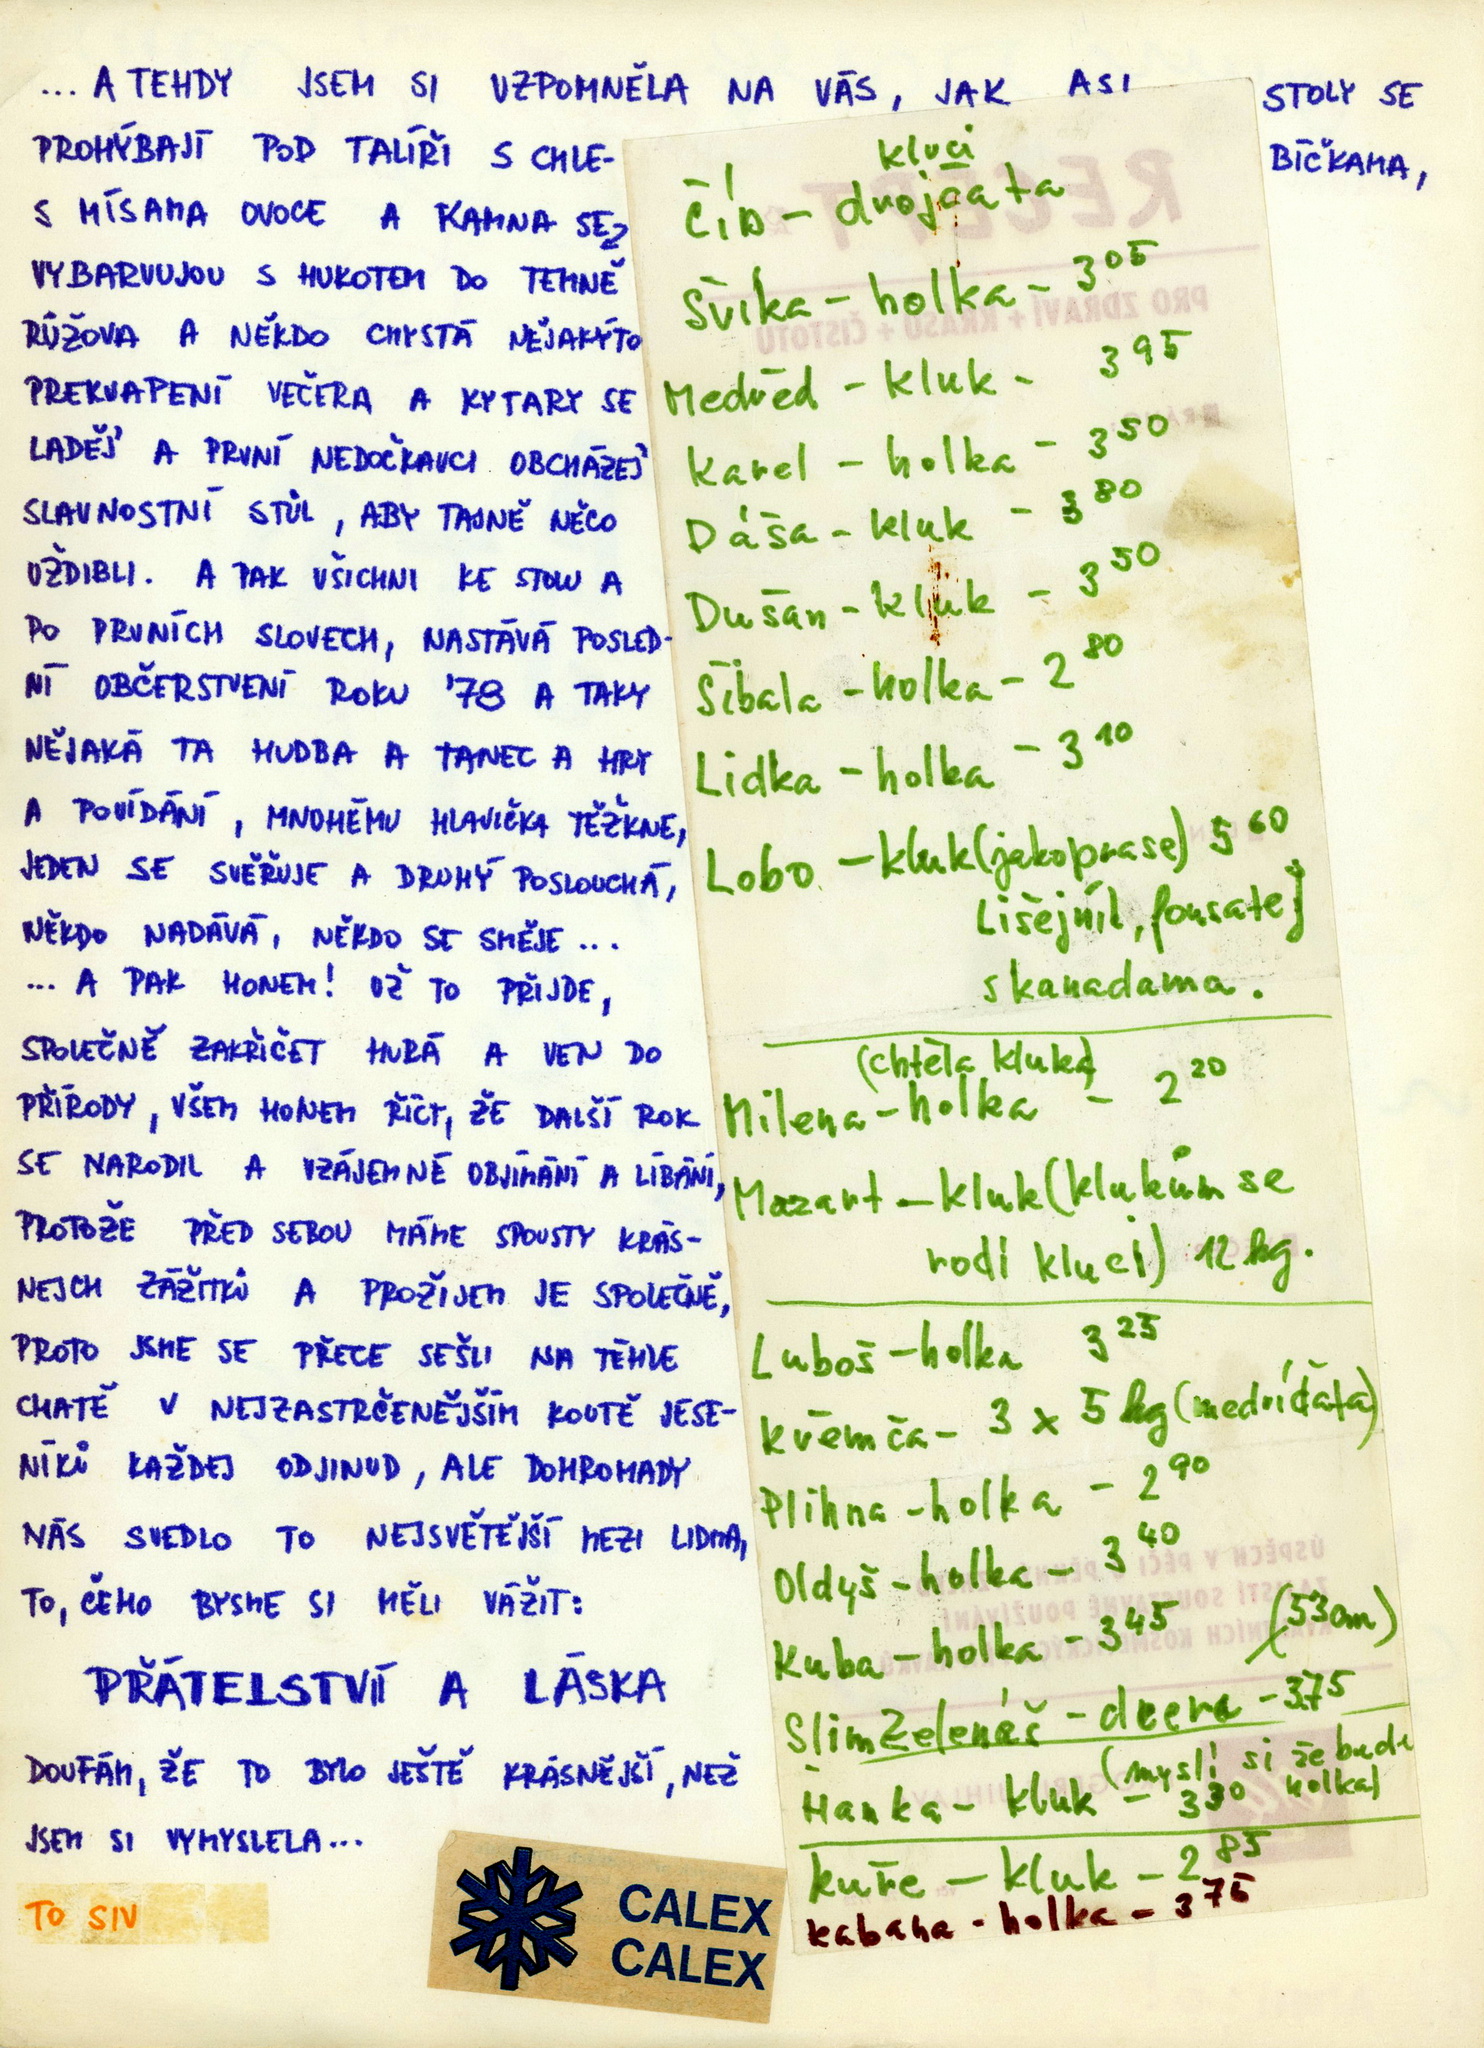 ... A TEHDY JSEM SI VZPOMNĚLA NA VÁS, JAK ASI STOLY SE
PROHÝBAJÍ POD TALÍŘI S CHLE-
BÍČKAMA,
S MÍSAMA OVOCE A KAMNA SE
VYBARVUJOU S HUKOTEM DO TEMNĚ
RŮŽOVA A NĚKDO CHYSTÁ NĚJAKÝTO
PREKVAPENÍ VEČERA A KYTARY SE
LADĚJ A PRVNÍ NEDOČKAVCI OBCHÁZEJ
SLAVNOSTNÍ STŮL, ABY TAJNĚ NĚCO
UŽDIBLI. A PAK VŠICHNI KE STOLU A
PO PRVNÍCH SLOVECH, NASTÁVÁ POSLED-
NÍ OBČERSTVENÍ ROKU '78 A TAKY
NĚJAKÁ TA HUDBA A TANEC A HRY
A POVÍDÁNÍ, MNOHÉMU HLAVIČKA TĚŽKNE,
JEDEN SE SVĚŘUJE A DRUHÝ POSLOUCHÁ,
NĚKDO NADÁVÁ, NĚKDO SE SMĚJE ...
... A PAK HONEM! UŽ TO PŘIJDE,
SPOLEČNĚ ZAKŘIČET HURÁ A VEN DO
PŘÍRODY, VŠEM HONEM ŘÍCT, ŽE DALŠÍ ROK
SE NARODIL A VZÁJEMNÉ OBJÍMÁNÍ A LÍBÁNÍ,
PROTOŽE PŘED SEBOU MÁME SPOUSTY KRÁS-
NEJCH ZÁŽITKŮ A PROŽIJEM JE SPOLEČNĚ,
PROTO JSME SE PŘECE SEŠLI NA TÉHLE
CHATĚ V NEJZASTRČENĚJŠÍM KOUTĚ JESE-
NÍKŮ KAŽDEJ ODJINUD, ALE DOHROMADY
NÁS SVEDLO TO NEJSVĚTĚJŠÍ MEZI LIDMA,
TO, ČEHO BYSME SI MĚLI VÁŽIT:
PŘÁTELSTVÍ A LÁSKA
DOUFÁM, ŽE TO BYLO JEŠTĚ KRÁSNĚJŠÍ, NEŽ
JSEM SI VYMYSLELA...
TO SIV
CALEX
CALEX
kluci
Číp - dvojčata
Švika - holka - 3 05
Medvěd - kluk - 3 95
Karel - holka - 3 50
Dáša - kluk - 3 80
Dušan - kluk - 3 50
Šibala - holka - 2 80
Lidka - holka - 3 10
Lobo - kluk (jakoprase) 5 60
Lišejníl, fousatej
s kanadama.
(chtěla kluka)
Milena - holka - 2 20
Mozart - kluk (klukům se
rodí kluci) 12 kg.
Luboš - holka 3 25
Křemča - 3 x 5 kg (medvíďata)
Plihna - holka - 2 90
Oldyš - holka - 3 40
Kuba - holka - 3 45 (53cm)
Slimzelenáš - dcera - 3.75
(myslí si že bude
Hanka - kluk - 3 30 holka)
Kuře - kluk - 2 85
Kabaha - holka - 3 75